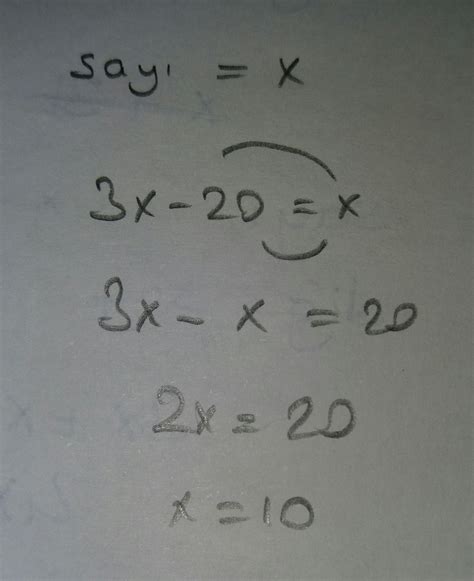 sayı = x
3x - 20 = x
3x - x = 20
2x = 20
x = 10